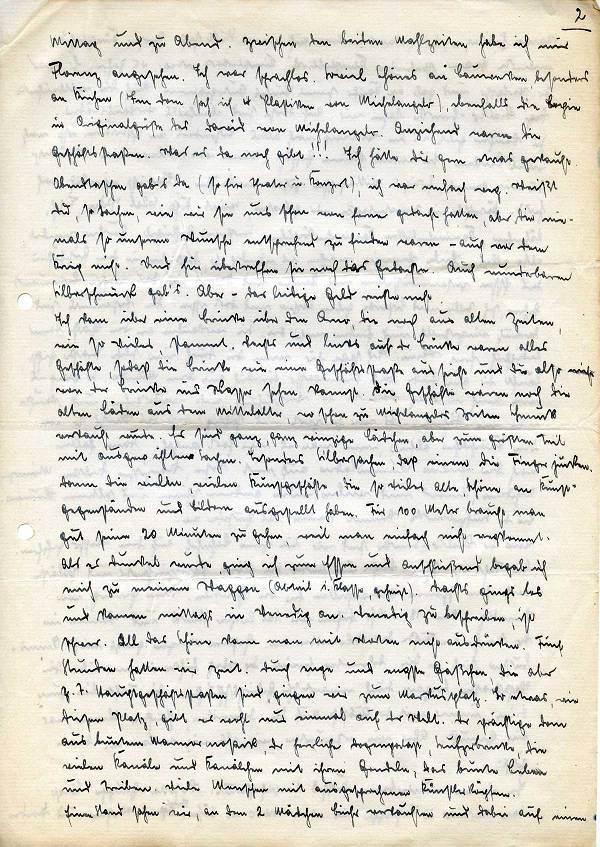 2
Mittag und zu Abend. Zwischen den beiden Mahlzeiten habe ich mir
Florenz angesehen. Ich war sprachlos. Soviel Schönes an Bauwerken besonders
an Kirchen (Im Dom sah ich 4 Plastiken von Michelangelo), ebenfalls die Kopie
in Originalgröße des David von Michelangelo. Anziehend waren die
Geschäftsstraßen. Was es da noch gibt!!! Ich hätte Dir gern etwas gekauft.
Abendtaschen gab's da (so für Theater u. Konzert), ich war einfach weg. Weißt
Du, so Sachen, wie wir sie uns schon von ferne gedacht hatten, aber die nie-
mals so unserem Wunsche entsprechend zu finden waren – auch vor dem
Krieg nicht. Und hier übertreffen sie noch das Gedachte. Auch wunderbaren
Silberschmuck gab's. Aber – das leidige Geld reichte nicht.
Ich kam über eine Brücke über den Arno, die noch aus alten Zeiten,
wie so vieles, stammt. Rechts und links auf der Brücke waren alles
Geschäfte, sodaß die Brücke wie eine Geschäftsstraße aussieht und Du also nicht
von der Brücke ins Wasser sehen kannst. Die Geschäfte waren noch die
alten Läden aus dem Mittelalter, wo schon zu Michelangelos Zeiten Schmuck
verkauft wurde. Es sind ganz, ganz winzige Lädchen, aber zum größten Teil
mit ausgewählten Sachen. Besonders Silbersachen, daß einem die Finger jucken.
Dann die vielen, vielen Kunstgeschäfte, die so vieles alte Schöne an Kunst-
gegenständen und Bildern ausgestellt haben. Für 100 Meter braucht man
gut seine 20 Minuten zu gehen, weil man einfach nicht wegkommt.
Als es dunkel wurde ging ich zum Essen und anschließend begab ich
mich zu meinem Waggon (Abteil 1. Klasse, geheizt). Nachts gings los
und kamen mittags in Venedig an. Venedig zu beschreiben, ist
schwer. All das Schöne kann man mit Worten nicht ausdrücken. Fünf
Stunden hatten wir Zeit. Durch enge und engste Gäßchen, die aber
z. T. Hauptgeschäftsstraßen sind, gingen wir zum Markusplatz. So etwas, wie
diesen Platz, gibt es wohl nur einmal auf der Welt. Der prächtige Dom
aus buntem Marmormosaik, der herrliche Dogenpalast, Seufzerbrücke, die
vielen Kanäle und Kanälchen mit ihren Gondeln, das bunte Leben
und Treiben. Viele Menschen mit ausgesprochenen Künstlerköpfen.
Einen Stand sahen wir, an dem 2 Mädchen verkauften und dabei auf einem